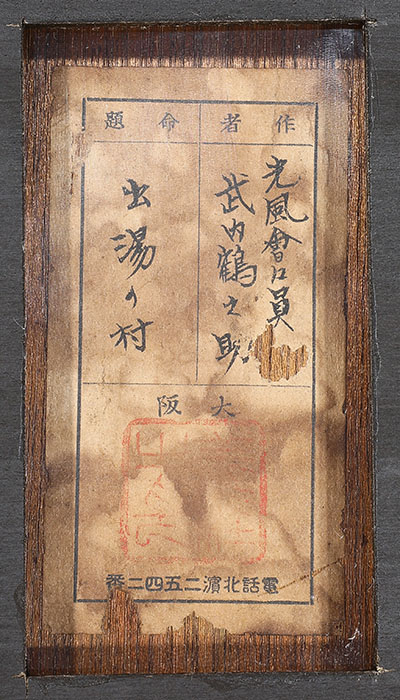 作者
光風會員
武内鶴之助
命題
出湯の村
大阪
電話北濱二五四二番